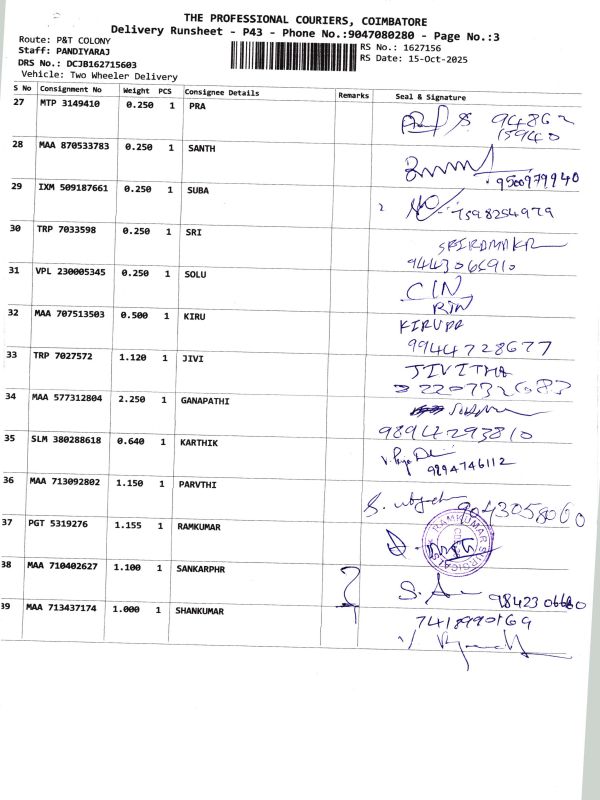 THE PROFESSIONAL COURIERS, COIMBATORE
Delivery Runsheet - P43 - Phone No.:9047080280 - Page No.:3
Route: P&T COLONY
RS No.: 1627156
Staff: PANDIYARAJ
RS Date: 15-Oct-2025
DRS No.: DCJB162715603
Vehicle: Two Wheeler Delivery
S No Consignment No Weight PCS Consignee Details Remarks Seal & Signature
27 MTP 3149410 0.250 1 PRA
28 MAA 870533783 0.250 1 SANTH
9500979940
29 IXM 509187661 0.250 1 SUBA
7598254979
30 TRP 7033598 0.250 1 SRI
SRIRAMAKR
31 VPL 230005345 0.250 1 SOLU
CIN
32 MAA 707513503 0.500 1 KIRU
KIRUPA
9944728677
33 TRP 7027572 1.120 1 JIVI
JIVITHA
34 MAA 577312804 2.250 1 GANAPATHI
9894293810
35 SLM 380288618 0.640 1 KARTHIK
9894746112
36 MAA 713092802 1.150 1 PARVTHI
9043058060
37 PGT 5319276 1.155 1 RAMKUMAR
RAMKUMAR SURGICALS
38 MAA 710402627 1.100 1 SANKARPHR
9842306680
39 MAA 713437174 1.000 1 SHANKUMAR
7418990169